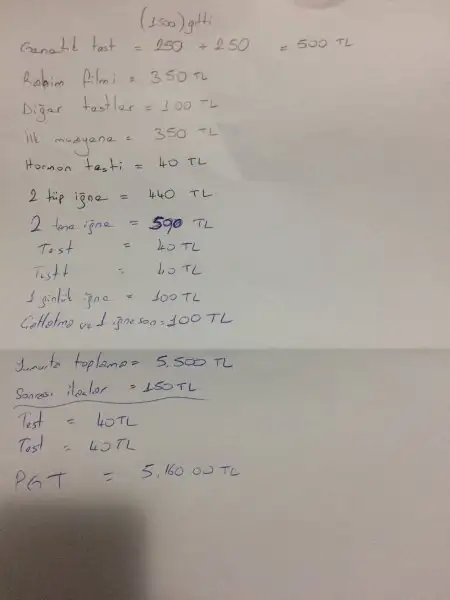 (1500) gitti
Genetik test = 250 + 250 = 500 TL
Rahim filmi = 350 TL
Diğer testler = 100 TL
ilk muayane = 350 TL
Hormon testi = 40 TL
2 tüp iğne = 440 TL
2 tane iğne = 590 TL
Test = 40 TL
Testt = 40 TL
1 günlük iğne = 100 TL
Çatlatma ve 1 iğne son = 100 TL
Yumurta toplama = 5.500 TL
Sonrası ilaçlar = 150 TL
Test = 40 TL
Test = 40 TL
PGT = 5.160 00 TL